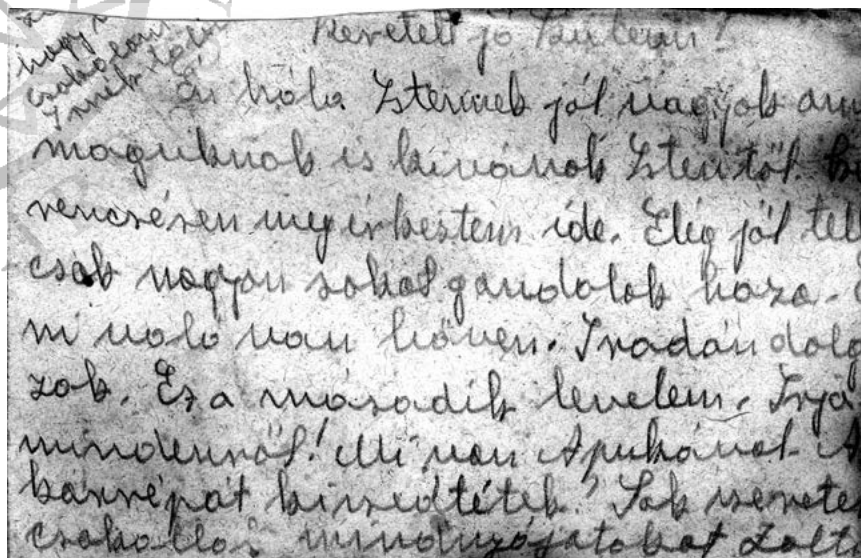 nagy
csokolom
Imek
Szeretett jó
Én hála Istennek jól vagyok
maguknak is kivánok Istentől.
rencsésen megérkestem ide. Elég jól
csak nagyon sokat gondolok haza.
ni való van bőven. Irodán dolg
zok. Ez a második levelem. Irja
mindenről! Mi van Apukával. A
kásrépát kiszedtétek? Sok szerete
csokollo mindnyájatokat Zolt